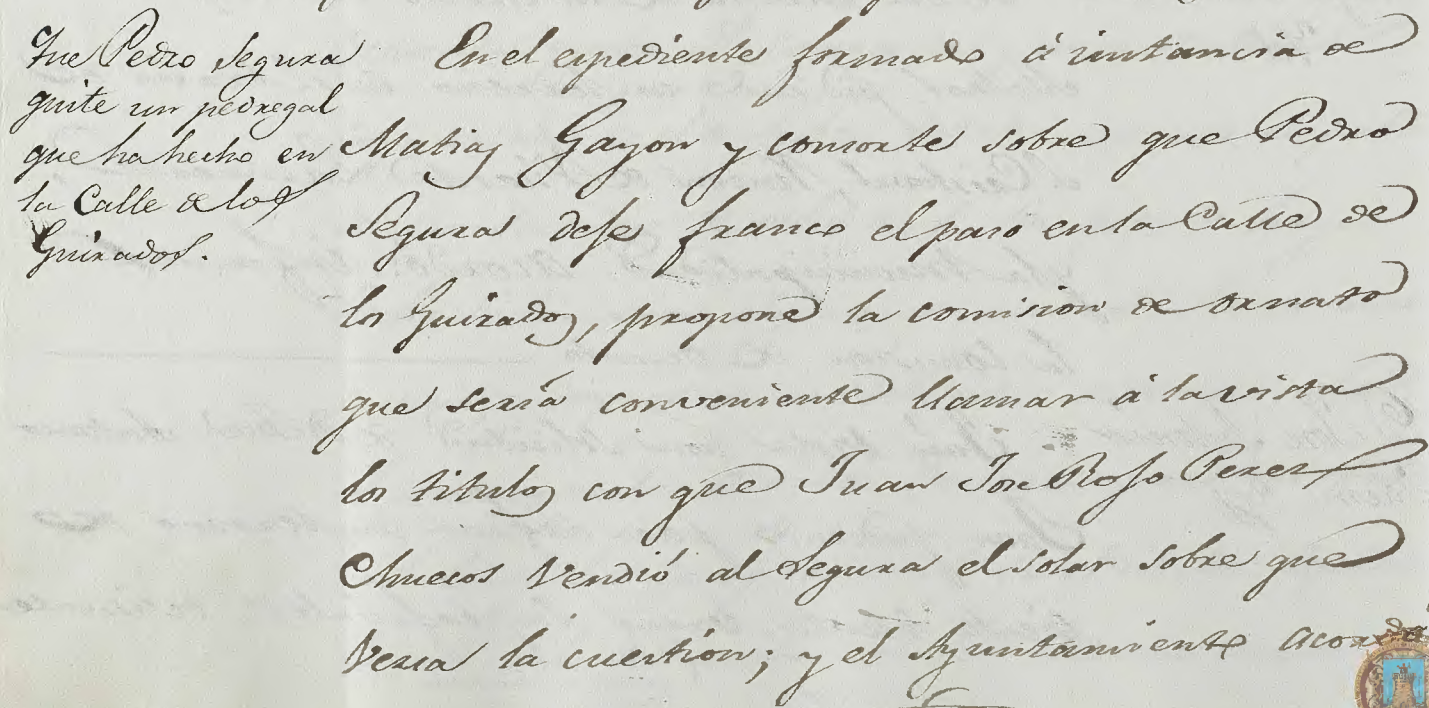 Que Pedro Segura
quite un pedregal
que ha hecho en
la Calle de los
Guirados.
En el espediente formado á instancia de
Matias Gayon y consorte sobre que Pedro
Segura deje franco el paso en la Calle de
los Guirados, propone la comision de ornato
que sería conveniente llamar á la vista
los titulos con que Juan José Rojo Perez
Chuecos vendió al Segura el solar sobre que
versa la cuestion; y el Ayuntamiento acordó